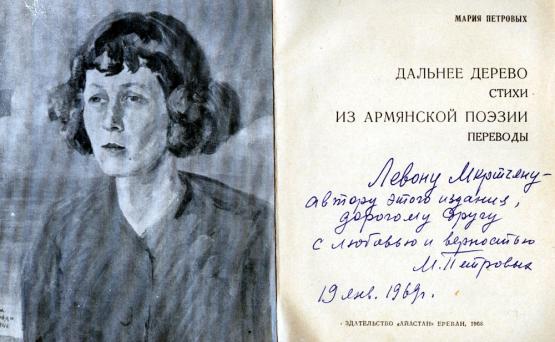 МАРИЯ ПЕТРОВЫХ
ДАЛЬНЕЕ ДЕРЕВО
СТИХИ
ИЗ АРМЯНСКОЙ ПОЭЗИИ
ПЕРЕВОДЫ
Левону Мкртчяну-
автору этого издания,
дорогому другу
с любовью и верностью
М. Петровых
19 янв. 1969г.
ЗДАТЕЛЬСТВО «АЙАСТАН» ЕРЕВАН, 1968